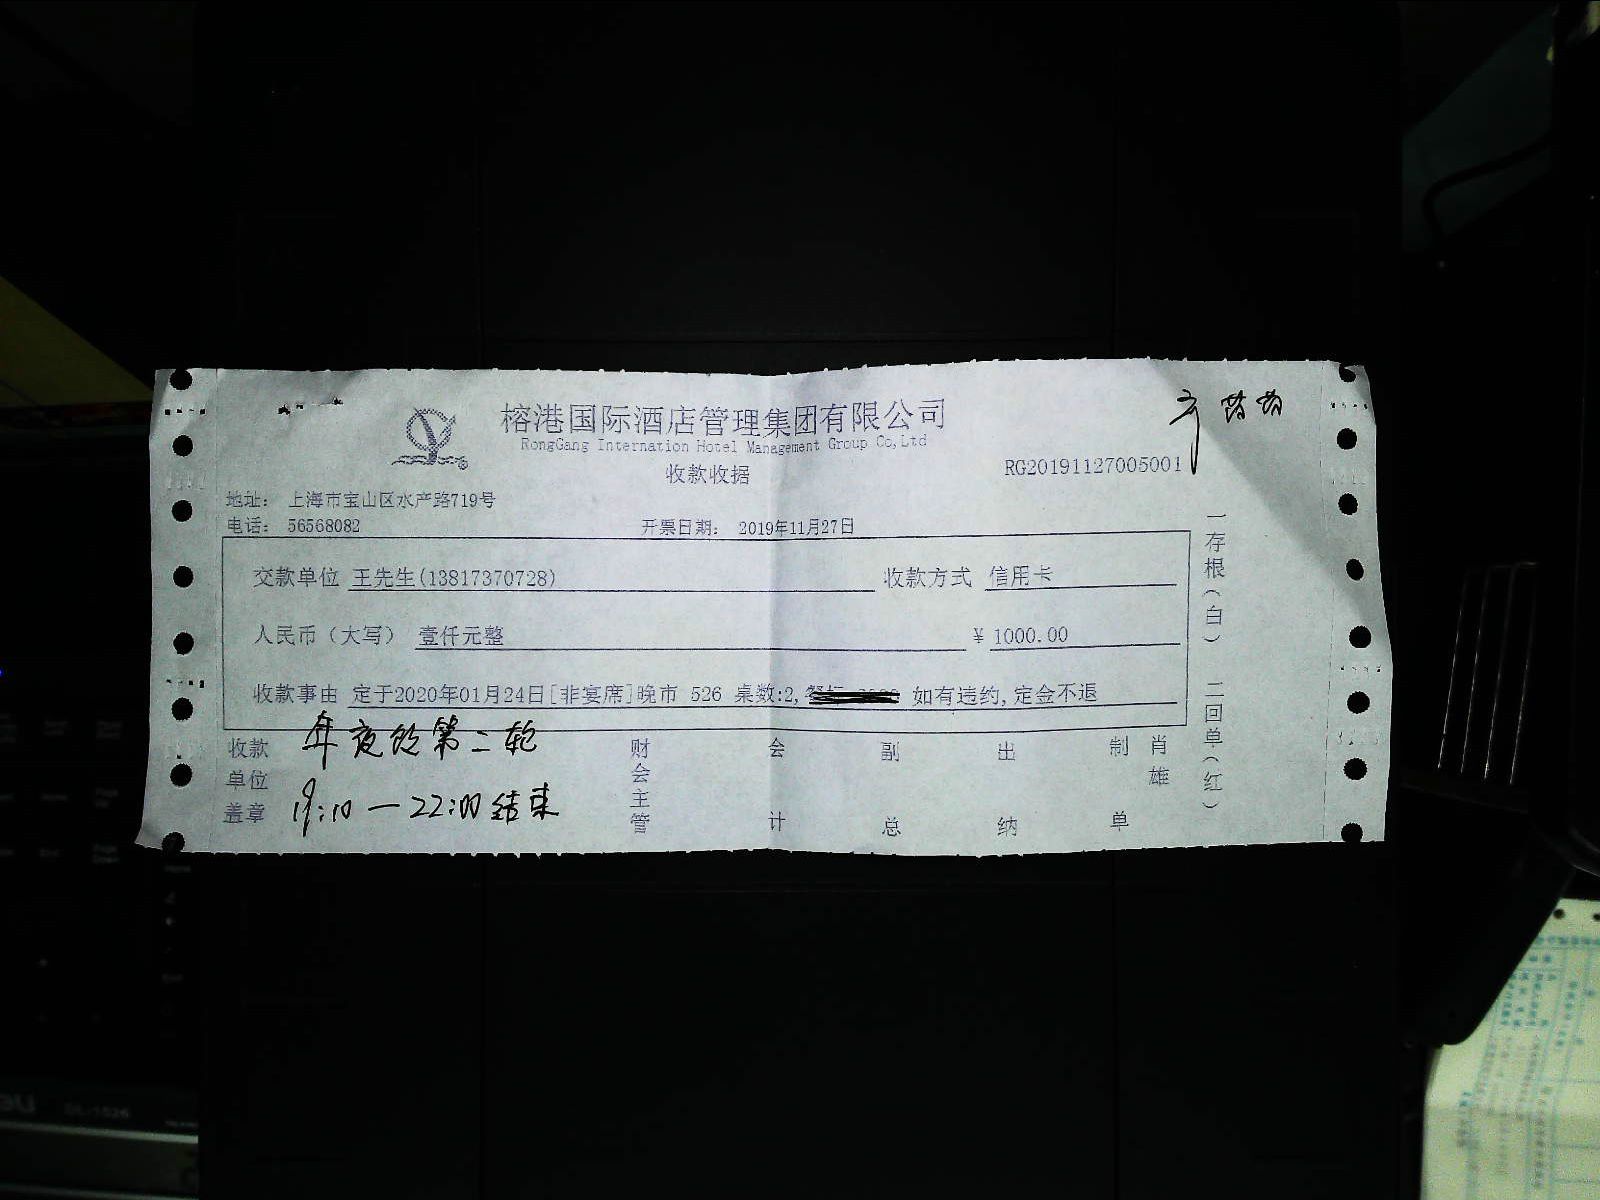 榕港国际酒店管理集团有限公司
RongGang Internation Hotel Management Group Co,Ltd
收款收据
RG20191127005001
地址： 上海市宝山区水产路719号
电话： 56568082
开票日期： 2019年11月27日
交款单位 王先生(13817370728)
收款方式 信用卡
人民币（大写） 壹仟元整
¥ 1000.00
收款事由 定于2020年01月24日[非宴席]晚市 526 桌数:2, 如有违约,定金不退
年夜饭第二轮
19:10—22:00结束
收款单位盖章
财会主管
会计
副总
出纳
制单
肖雄
一存根（白）
二回单（红）